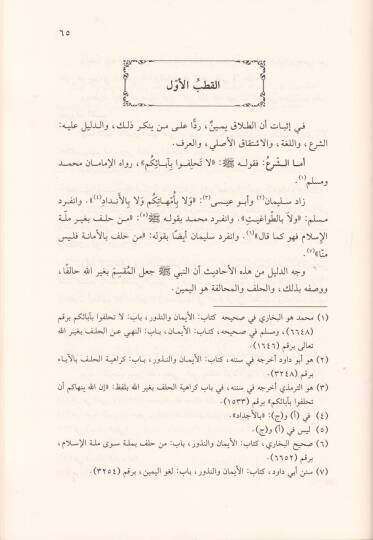 ٦٥
القطبُ الأوّل
في إثبات أن الطلاق يمينٌ، ردًّا على من ينكر ذلك، والدليل عليه:
الشرع، واللغة، والاشتقاق الأصلي، والعرف.
أما الشّرعُ: فقوله ﷺ: «لا تَحلِفوا بِآبائِكُم»، رواه الإمامان محمد
ومسلم(١).
زاد سليمان(٢) وأبو عيسى(٣): «وَلا بِأُمّهاتِكُم وَلا بِالأندادِ(٤)». وانفرد
مسلم: «ولا بالطّواغيتِ». وانفرد محمد بقوله ﷺ(٥): «من حلف بغير ملّة
الإسلام فهو كما قال»(٦). وانفرد سليمان أيضًا بقوله: «من حلف بالأمانة فليس
منّا»(٧).
وجه الدليل من هذه الأحاديث أن النبي ﷺ جعل المُقسِمَ بغير الله حالفًا،
ووصفه بذلك، والحلف والمحالفة هو اليمين.
(١) محمد هو البخاري في صحيحه كتاب: الأيمان والنذور، باب: لا تحلفوا بآبائكم برقم
(٦٦٤٨)، ومسلم في صحيحه، كتاب: الأيمان، باب: النهي عن الحلف بغير الله
تعالى برقم (١٦٤٦).
(٢) هو أبو داود أخرجه في سننه، كتاب: الأيمان والنذور، باب: كراهية الحلف بالآباء
برقم (٣٢٤٨).
(٣) هو الترمذي أخرجه في سننه، في باب كراهية الحلف بغير الله بلفظ: «إن الله ينهاكم أن
تحلفوا بآبائكم» برقم (١٥٣٣).
(٤) في (أ) و(ج): «بالأجداد».
(٥) ليس في (أ) و(ج).
(٦) صحيح البخاري، كتاب: الأيمان والنذور، باب: من حلف بملة سوى ملة الإسلام،
برقم (٦٦٥٢).
(٧) سنن أبي داود، كتاب: الأيمان والنذور، باب: لغو اليمين، برقم (٣٢٥٤).